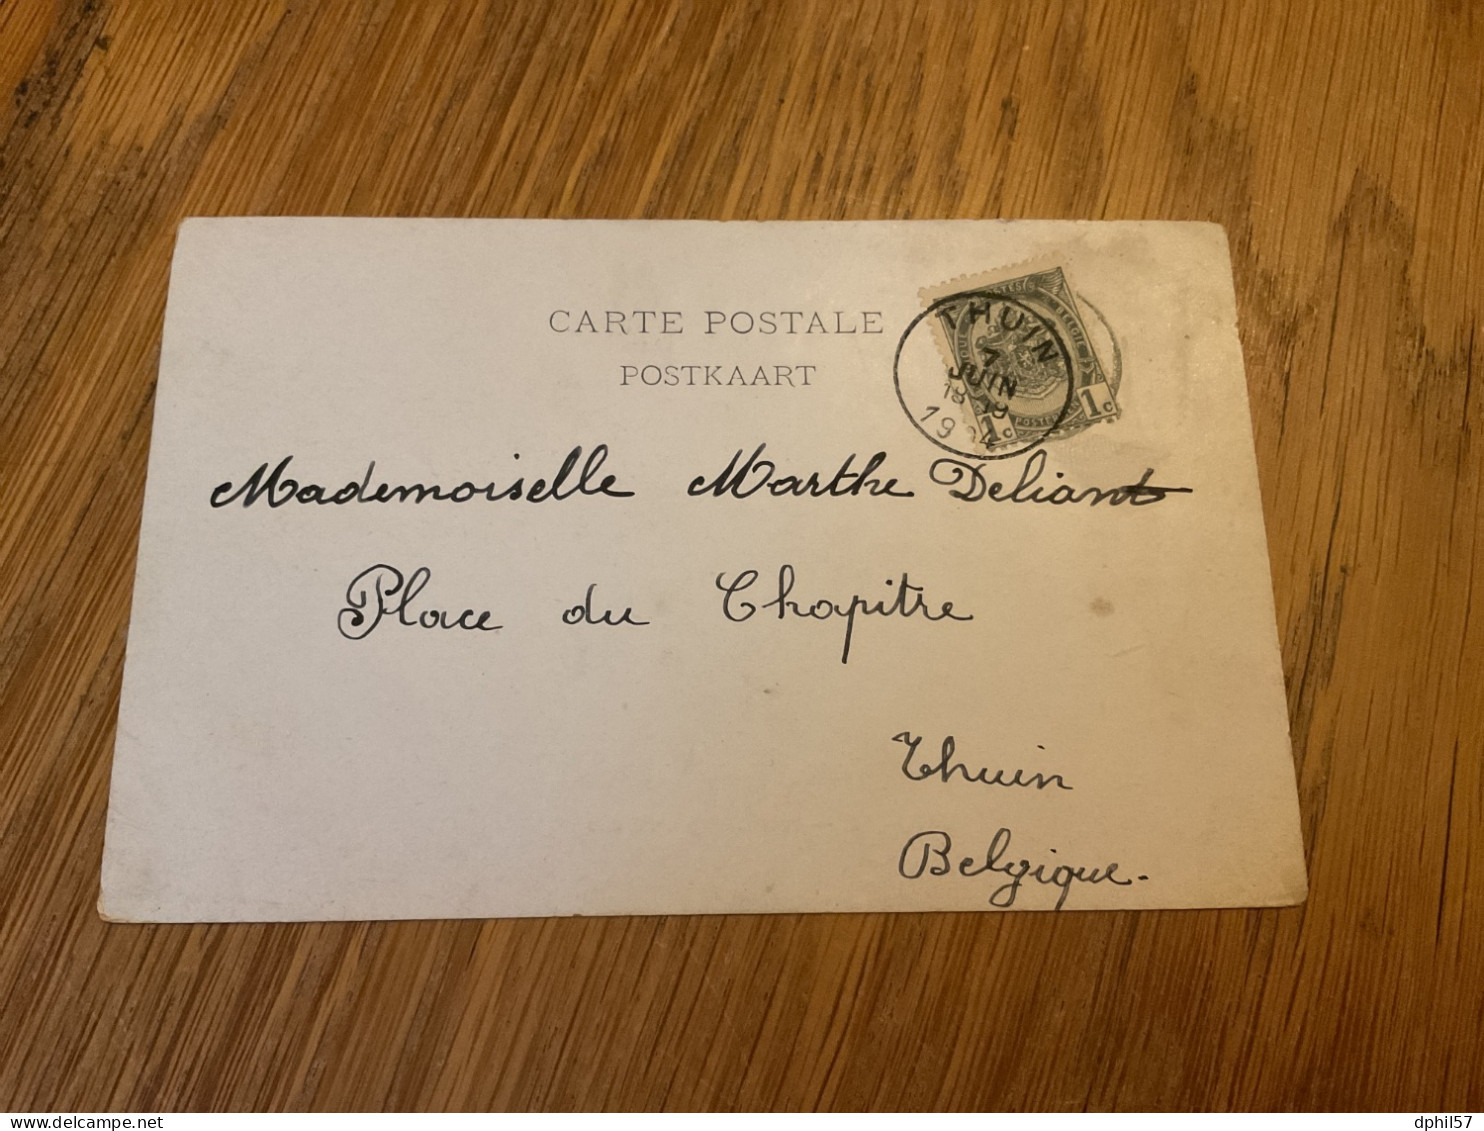 CARTE POSTALE
POSTKAART
THUIN
7
JUIN
18-19
Mademoiselle Marthe Deliant
Place du Chapitre
Thuin
Belgique.
POSTES BELGIQUE
1c 1c
delcampe.net
dphil57